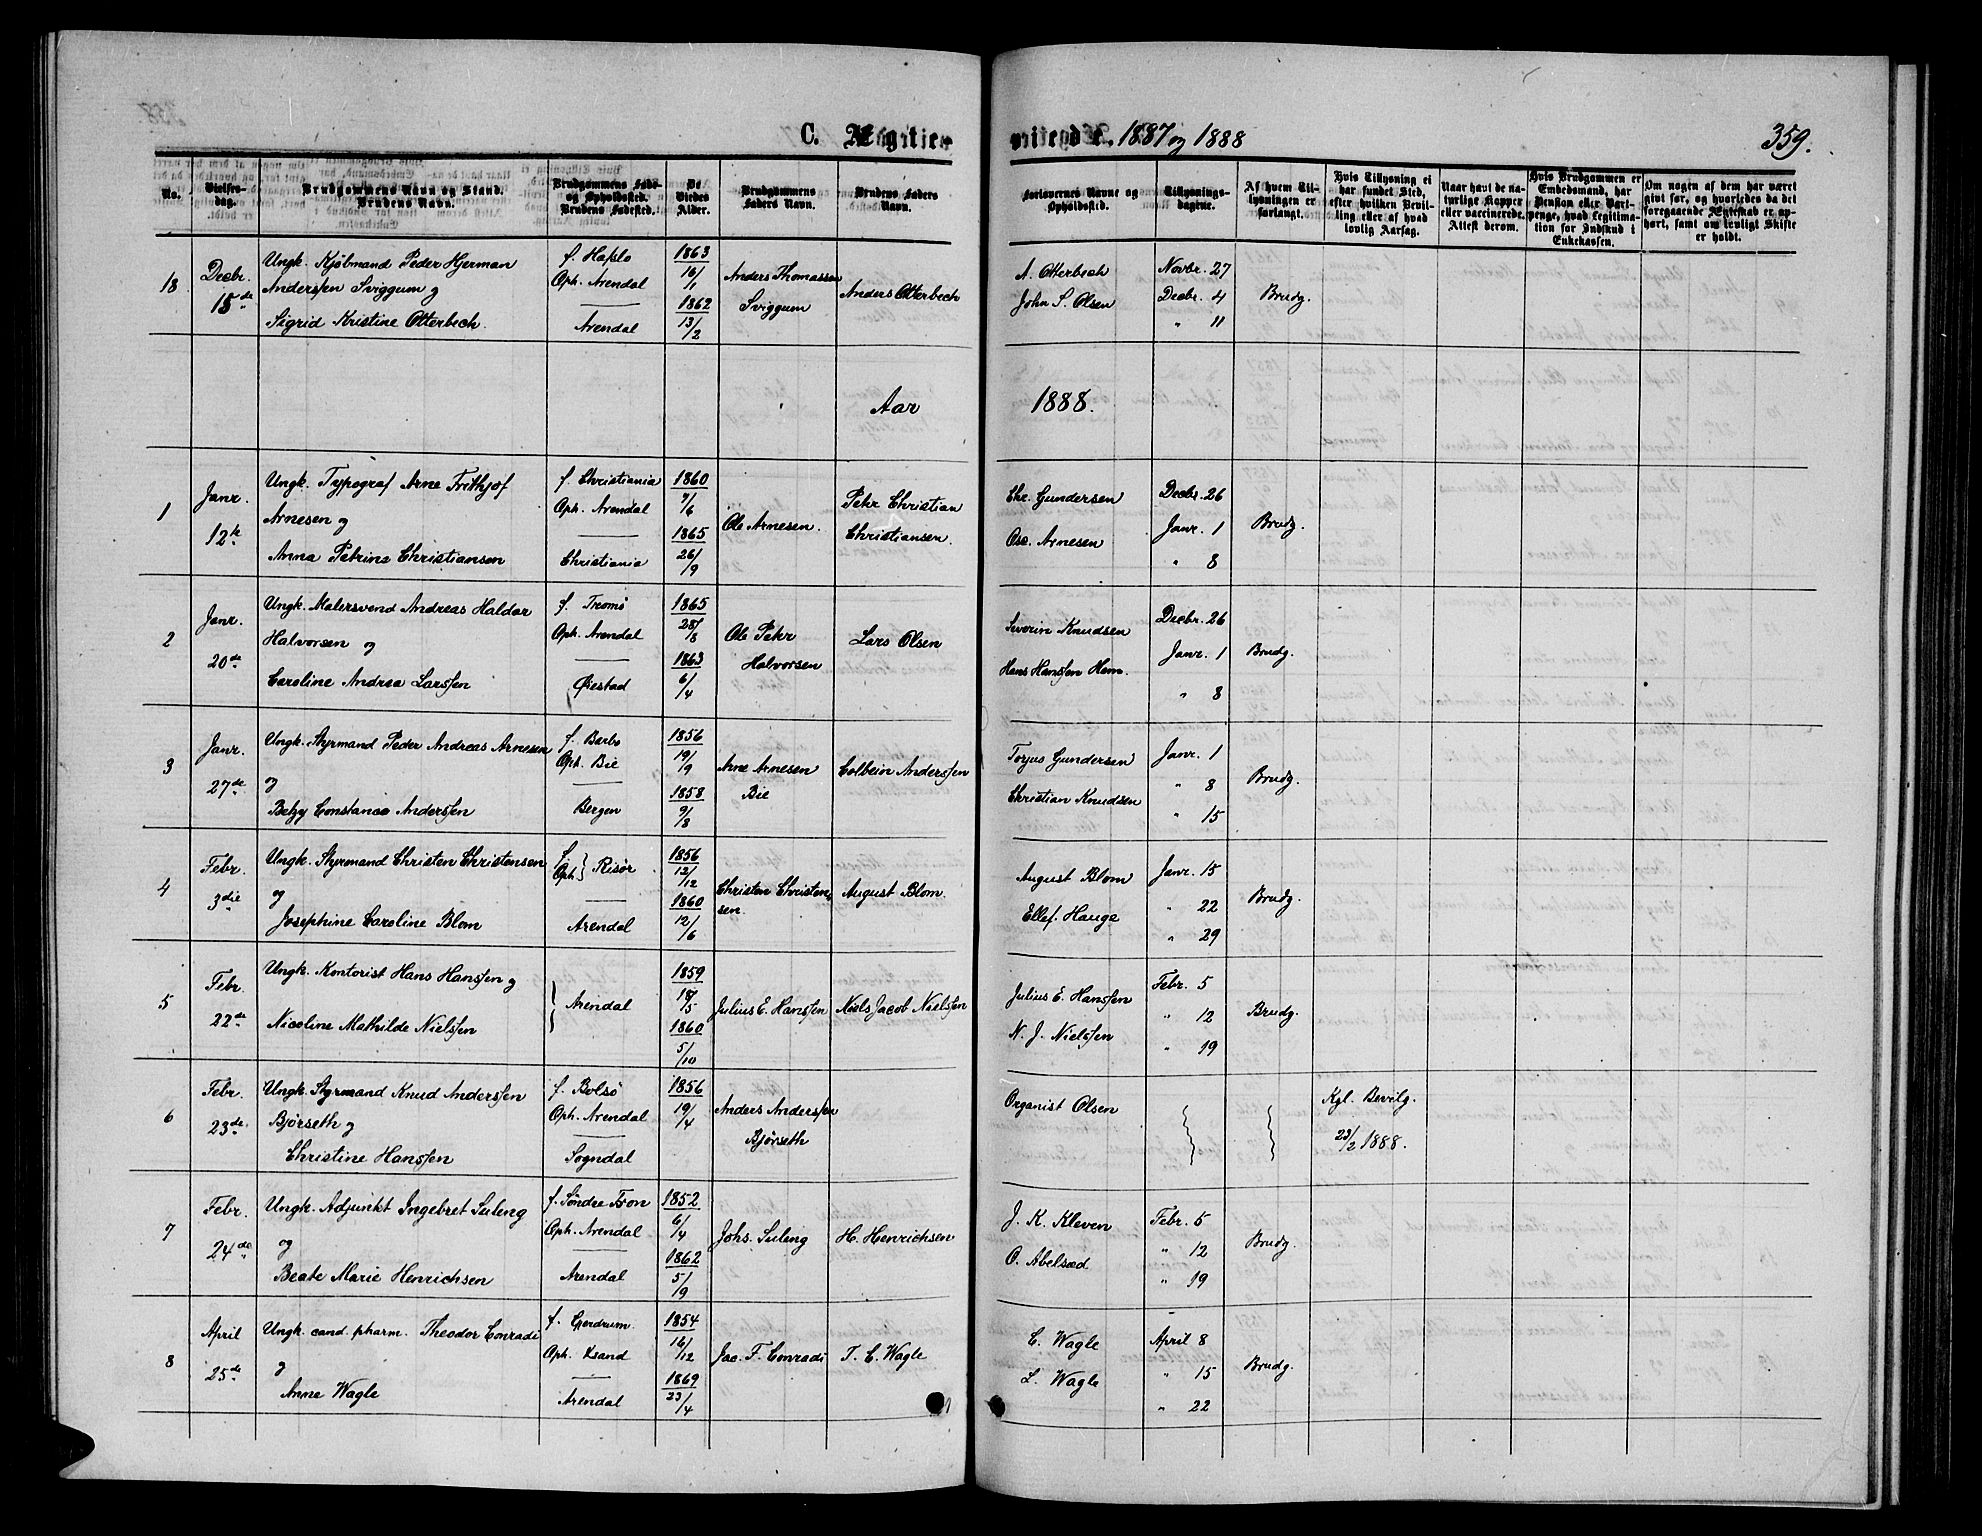 C. Ægtevi
ende. 1887 og 1888
359.
No.
Vielses-dag.
Brudgommens Navn og Stand.
Brudens Navn.
Brudgommens Føde- og Opholdssted.
Brudens Fødested.
De Viedes Alder.
Brudgommens Faders Navn.
Brudens Faders Navn.
Forlovernes Navne og Opholdssted.
Tillysnings-dagene.
Af hvem Til-lysningen er forlangt.
Hvis Tillysning ei har fundet Sted, efter hvilken Bevil-ling eller af hvad lovlig Aarsag.
Naar havt de na-turlige Kopper eller vaccinerede. Attest derom.
Hvis Brudgommen er Embedsmand, har Pension eller Vart-penge, hvad Legitima-tion for Indskud i Enkekassen.
Om nogen af dem har været gift før, og hvorledes da det foregaaende Ægteskab er op-hørt, samt om lovligt Skifte er holdt.
18 Decbr. 15de
Ungk. Kjøbmand Peder Hjerman
Anderssen Sviggum og
Sigrid Kristine Otterbech.
f. Hafslo
Oph. Arendal
Arendal
1863 16/1
1862 13/2
Anders Thomassen
Sviggum
Anders Otterbech
A. Otterbech
John S. Olsen
Novbr. 27
Decbr. 4
" 11
Brudg.
Aar 1888.
1 Janr. 12te
Ungk. Typograf Arne Frithjof
Arnesen og
Anna Petrine Christiansen
f. Christiania
Oph. Arendal
Christiania
1860 9/6
1865 26/9
Ole Arnesen.
Peter Christian
Christiansen.
Chr. Gundersen
Osc. Arnesen
Decbr. 26
Janr. 1
" 8
Brudg.
2 Janr. 20de
Ungk. Malersvend Andreas Haldor
Halvorsen og
Caroline Andrea Larssen
f. Tromø
Oph. Arendal
Øiestad
1865 28/8
1863 6/4
Ole Peter
Halvorsen
Lars Olsen
Severin Knudsen
Hans Hanssen Hem.
Decbr. 26
Janr. 1
" 8
Brudg.
3 Janr. 27de
Ungk. Styrmand Peder Andreas Arnesen
og
Betzy Constance Anderssen
f. Barbo
Oph. Bie
Bergen
1856 19/9
1858 9/8
Arne Arnesen
Bie
Colbein Anderssen
Torjus Gundersen
Christian Knudsen
Janr. 1
" 8
" 15
Brudg.
4 Febr. 3die
Ungk. Styrmand Christen Christensen
og
Josephine Caroline Blom
f. Oph. } Risør
Arendal
1856 12/12
1860 12/6
Christen Christen-
sen.
August Blom.
August Blom
Ellef. Hauge
Janr. 15
" 22
" 29
Brudg.
5 Febr. 22de
Ungk. Kontorist Hans Hanssen og
Nicoline Mathilde Nielssen
Arendal
1859 18/5
1860 5/10
Julius E. Hanssen
Niels Jacob Nielssen
Julius E. Hanssen
N. J. Nielssen
Febr. 5
" 12
" 19
Brudg.
6 Febr. 23de
Ungk. Styrmand Knud Anderssen
Bjørseth og
Christine Hanssen
f. Bolsø
Oph. Arendal
Sogndal
1856 19/4
Anders Anderssen
Bjørseth
Organist Olsen
Kgl. Bevilg.
23/2 1888.
7 Febr. 24de
Ungk. Adjunkt Ingebret Suleng
og
Beate Marie Henrichsen
f. Søndre Fron
Oph. Arendal
Arendal
1852 6/4
1862 5/9
Johs. Suleng
H. Henrichsen
J. K. Kleven
O. Abelsæd
Febr. 5
" 12
" 19
Brudg.
8 April 25de
Ungk. cand. pharm. Theodor Conradi
og
Anne Wagle
f. Gjerdrum.
Oph. Xsand
Arendal
1854 16/12
1869 23/4
Jac. F. Conradi
T. C. Wagle
C. Wagle
L. Wagle
April 8
" 15
" 22
Brudg.